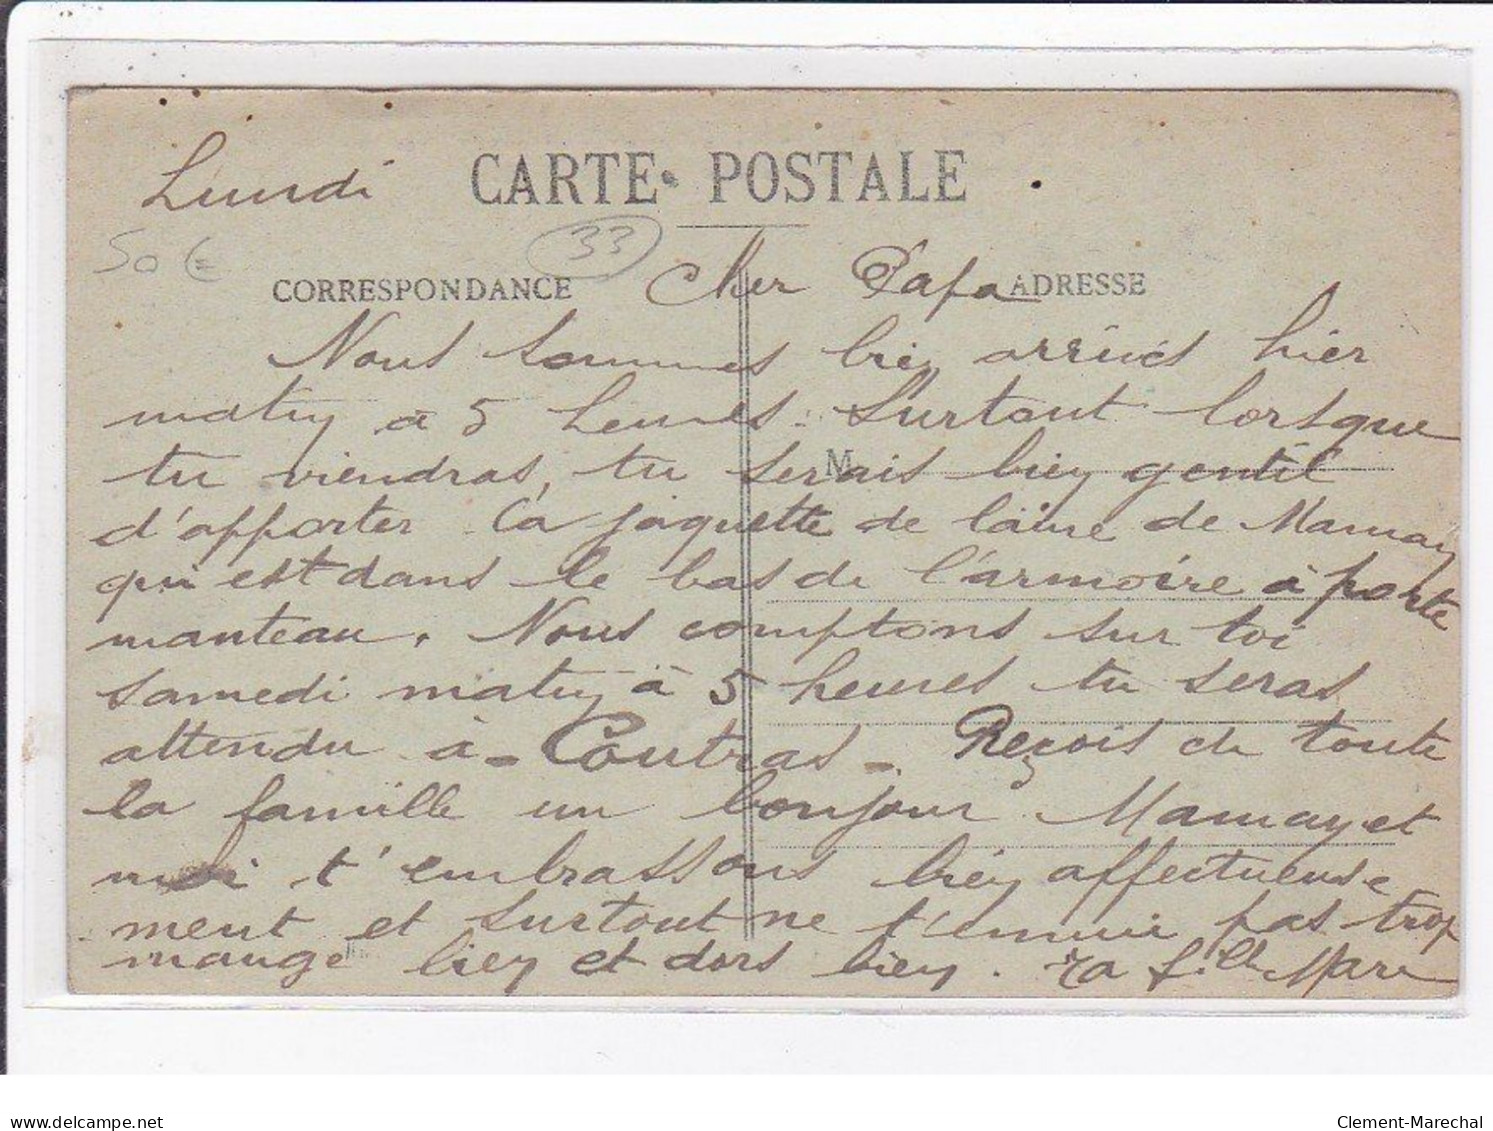 Lundi
CARTE POSTALE
50 €
33
CORRESPONDANCE
ADRESSE
Cher Papa
Nous sommes bien arrivés hier
matin à 5 heures. Surtout lorsque
M
tu viendras, tu serais bien gentil
d'apporter la jaquette de laine de Maman
qui est dans le bas de l'armoire à porte
manteau. Nous comptons sur toi
samedi matin à 5 heures tu seras
attendu à - Coutras - Reçois de toute
la famille un bonjour Maman et
moi t'embrassons bien affectueuse
ment et surtout ne t'ennuie pas trop
mange bien et dors bien. Ta fille
delcampe.net
Clement-Marechal